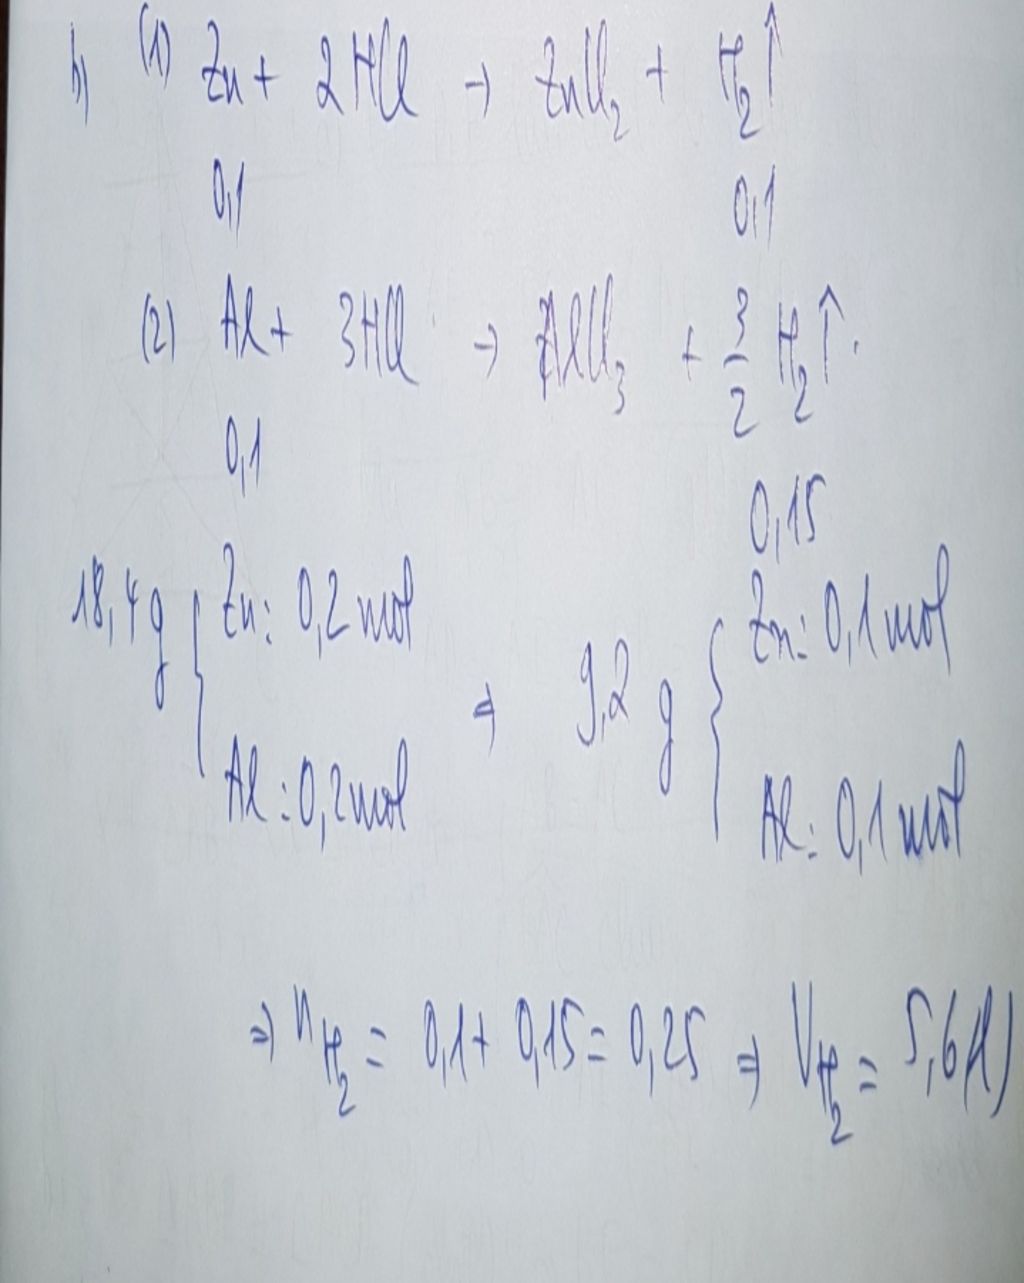 b) (1) Zn + 2HCl → ZnCl₂ + H₂↑
0,1 0,1
(2) Al + 3HCl → AlCl₃ + 3/2 H₂↑.
0,1 0,15
18,4g { Zn: 0,2 mol ⇒ 9,2 g { Zn: 0,1 mol
Al: 0,2 mol Al: 0,1 mol
⇒ nH₂ = 0,1 + 0,15 = 0,25 ⇒ VH₂ = 5,6(l)